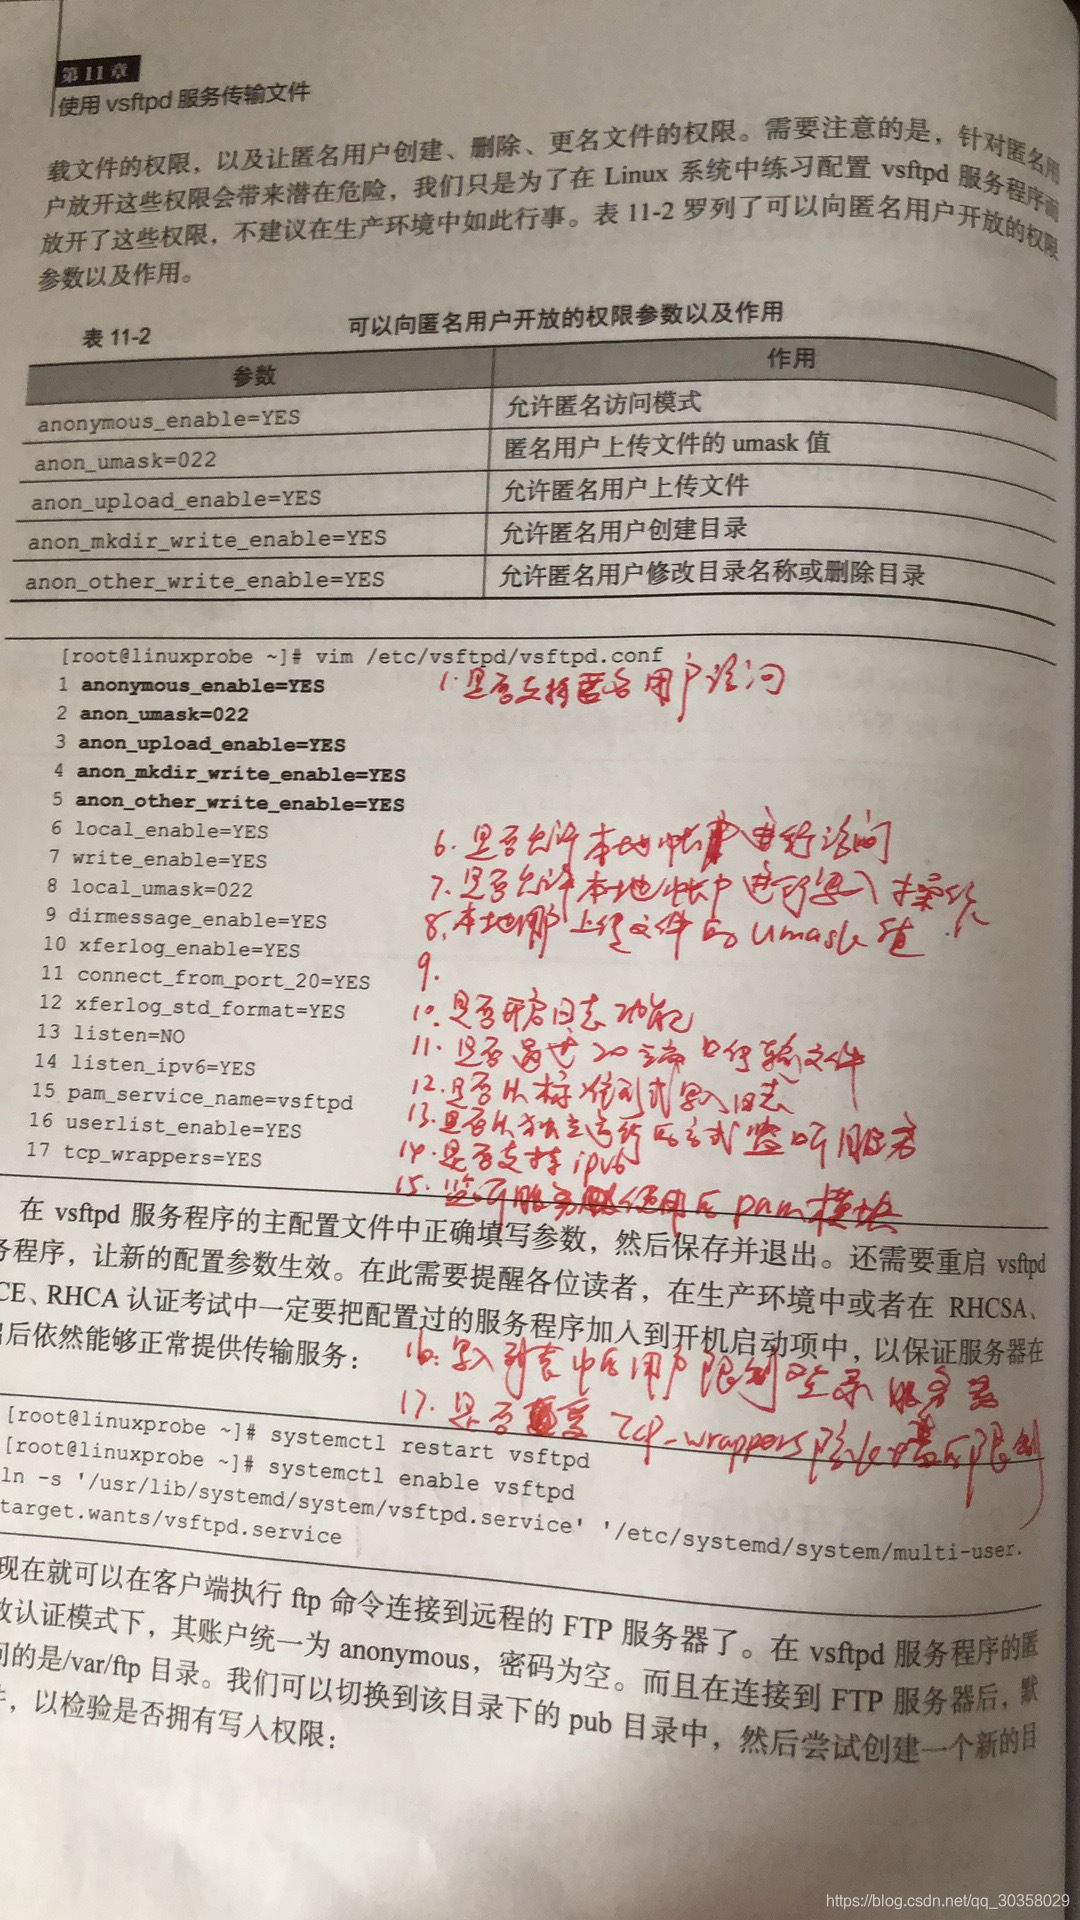 第11章
使用 vsftpd 服务传输文件
载文件的权限，以及让匿名用户创建、删除、更名文件的权限。需要注意的是，针对匿名用
户放开这些权限会带来潜在危险，我们只是为了在 Linux 系统中练习配置 vsftpd 服务程序而
放开了这些权限，不建议在生产环境中如此行事。表 11-2 罗列了可以向匿名用户开放的权限
参数以及作用。
表 11-2 可以向匿名用户开放的权限参数以及作用
参数 作用
anonymous_enable=YES 允许匿名访问模式
anon_umask=022 匿名用户上传文件的 umask 值
anon_upload_enable=YES 允许匿名用户上传文件
anon_mkdir_write_enable=YES 允许匿名用户创建目录
anon_other_write_enable=YES 允许匿名用户修改目录名称或删除目录
[root@linuxprobe ~]# vim /etc/vsftpd/vsftpd.conf
1 anonymous_enable=YES 1.是否支持匿名用户访问
2 anon_umask=022
3 anon_upload_enable=YES
4 anon_mkdir_write_enable=YES
5 anon_other_write_enable=YES
6 local_enable=YES 6.是否允许本地帐户进行访问
7 write_enable=YES 7.是否允许本地帐户进行写入操作
8 local_umask=022 8.本地用户上传文件的 umask 值
9 dirmessage_enable=YES 9.
10 xferlog_enable=YES 10.是否开启日志功能
11 connect_from_port_20=YES 11.是否通过20端口传输文件
12 xferlog_std_format=YES 12.是否以标准形式写入日志
13 listen=NO 13.是否以独立运行的方式监听服务
14 listen_ipv6=YES 14.是否支持ipv6
15 pam_service_name=vsftpd 15.监听服务使用的pam模块
16 userlist_enable=YES
17 tcp_wrappers=YES
在 vsftpd 服务程序的主配置文件中正确填写参数，然后保存并退出。还需要重启 vsftpd
务程序，让新的配置参数生效。在此需要提醒各位读者，在生产环境中或者在 RHCSA、
CE、RHCA 认证考试中一定要把配置过的服务程序加入到开机启动项中，以保证服务器在
后依然能够正常提供传输服务：
16.写入列表中的用户限制登录服务器
17.是否 Tcp_wrappers 的限制
[root@linuxprobe ~]# systemctl restart vsftpd
[root@linuxprobe ~]# systemctl enable vsftpd
ln -s '/usr/lib/systemd/system/vsftpd.service' '/etc/systemd/system/multi-user.
target.wants/vsftpd.service
现在就可以在客户端执行 ftp 命令连接到远程的 FTP 服务器了。在 vsftpd 服务程序的匿
认证模式下，其账户统一为 anonymous，密码为空。而且在连接到 FTP 服务器后，默
问的是/var/ftp 目录。我们可以切换到该目录下的 pub 目录中，然后尝试创建一个新的目
，以检验是否拥有写入权限：
https://blog.csdn.net/qq_30358029